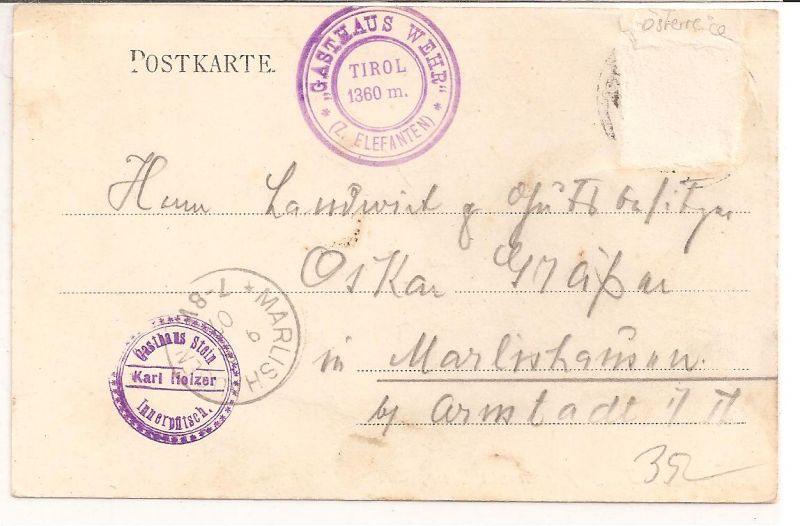 österreich
POSTKARTE.
„GASTHAUS WEHR“
TIROL
1360 m.
* (Z. ELEFANTEN) *
Herrn Landwirt & Gutsbesitzer
Oskar Gräßer
in Marlishausen.
by Arnstadt i/Th
* MARLISH
7-8V
Gasthaus Stein
Karl Holzer
Innerpfitsch.
352